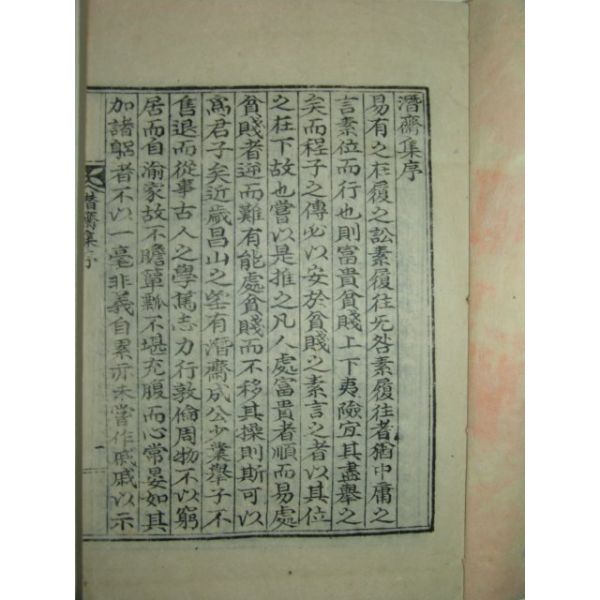 潛齋集序
易有之在履之訟素履往无咎素履往者猶中庸之
言素位而行也則富貴貧賤上下夷險宜其盡擧之
矣而程子之傳必以安於貧賤之素言之者以其位
之在下故也嘗以是推之凡人處富貴者順而易處
貧賤者逆而難有能處貧賤而不移其操則斯可以
爲君子矣近歲昌山之室有潛齋成公少業擧子不
售退而從事古人之學篤志力行敦倫周物不以窮
居而自渝家故不贍簞瓢不堪充腹而心常晏如其
加諸躬者不以一毫非義自累亦未嘗作戚戚以示
潛齋集序
一